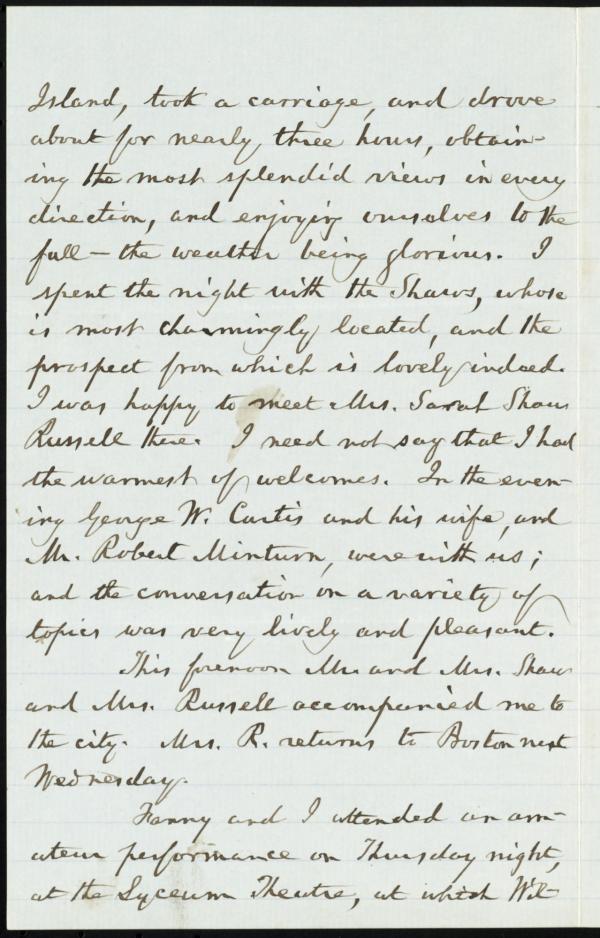 Island, took a carriage, and drove
about for nearly three hours, obtain-
ing the most splendid views in every
direction, and enjoying ourselves to the
full — the weather being glorious. I
spent the night with the Shaws, whose
is most charmingly located, and the
prospect from which is lovely indeed.
I was happy to meet Mrs. Sarah Shaw
Russell there. I need not say that I had
the warmest of welcomes. In the even-
ing George W. Curtis and his wife, and
Mr. Robert Minturn, were with us;
and the conversation on a variety of
topics was very lively and pleasant.
This forenoon Mr. and Mrs. Shaw
and Mrs. Russell accompanied me to
the city. Mrs. R. returns to Boston next
Wednesday.
Fanny and I attended an am-
ateur performance on Thursday night,
at the Lyceum Theatre, at which Wil-